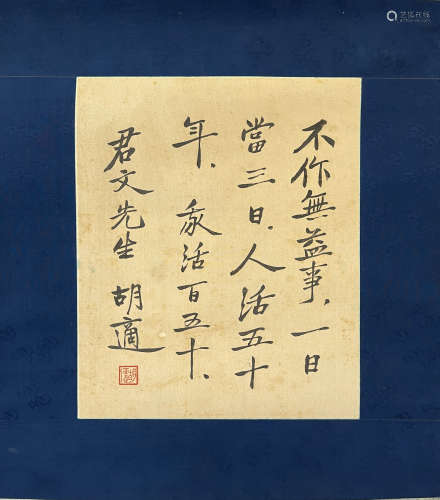 不作無益事．一日
當三日．人活五十
年．我活百五十．
君文先生 胡適